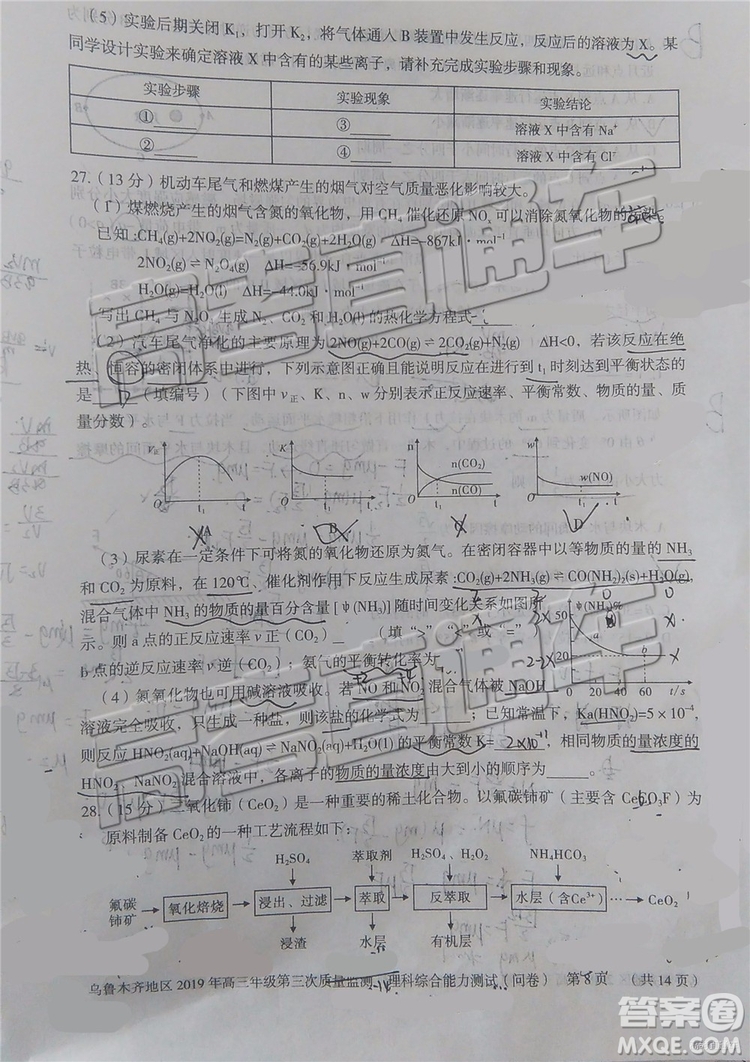 (5)实验后期关闭 K₁,打开 K₂,将气体通入 B 装置中发生反应,反应后的溶液为 X。某
同学设计实验来确定溶液 X 中含有的某些离子,请补充完成实验步骤和现象。
实验步骤 实验现象 实验结论
①______ ③______ 溶液 X 中含有 Na⁺
②______ ④______ 溶液 X 中含有 Cl⁻
27.(13 分)机动车尾气和燃煤产生的烟气对空气质量恶化影响较大。
(1)煤燃烧产生的烟气含氮的氧化物,用 CH₄ 催化还原 NOₓ 可以消除氮氧化物的
已知:CH₄(g)+2NO₂(g)=N₂(g)+CO₂(g)+2H₂O(g) ΔH=-867kJ·mol⁻¹
2NO₂(g)⇌N₂O₄(g) ΔH=-56.9kJ·mol⁻¹
H₂O(g)=H₂O(l) ΔH=-44.0kJ·mol⁻¹
写出 CH₄ 与 N₂O₄ 生成 N₂、CO₂ 和 H₂O(l)的热化学方程式
(2)汽车尾气净化的主要原理为 2NO(g)+2CO(g)⇌2CO₂(g)+N₂(g) ΔH<0,若该反应在绝
热、恒容的密闭体系中进行,下列示意图正确且能说明反应在进行到 t₁ 时刻达到平衡状态的
是______(填编号)(下图中 v正、K、n、w 分别表示正反应速率、平衡常数、物质的量、质
量分数)。
v正 K n n(CO₂) n(CO) w w(NO)
O t₁ t O t₁ t O t₁ t O t₁ t
A B C D
(3)尿素在一定条件下可将氮的氧化物还原为氮气。在密闭容器中以等物质的量的 NH₃
和 CO₂ 为原料,在 120℃、催化剂作用下反应生成尿素:CO₂(g)+2NH₃(g)⇌CO(NH₂)₂(s)+H₂O(g),
混合气体中 NH₃ 的物质的量百分含量[ψ(NH₃)]随时间变化关系如图所
示。则 a 点的正反应速率 v正(CO₂)______(填“>”、“<”或“=”)
b 点的逆反应速率 v逆(CO₂);氨气的平衡转化率为
ψ(NH₃)/%
50
a
0 20 40 60 t/s
(4)氮氧化物也可用碱溶液吸收。若 NO 和 NO₂ 混合气体被 NaOH
溶液完全吸收,只生成一种盐,则该盐的化学式为______;已知常温下,Ka(HNO₂)=5×10⁻⁴,
则反应 HNO₂(aq)+NaOH(aq)⇌NaNO₂(aq)+H₂O(l)的平衡常数 K=______,相同物质的量浓度的
HNO₂、NaNO₂ 混合溶液中,各离子的物质的量浓度由大到小的顺序为______。
28.(15 分)二氧化铈(CeO₂)是一种重要的稀土化合物。以氟碳铈矿(主要含 CeCO₃F)为
原料制备 CeO₂ 的一种工艺流程如下:
H₂SO₄ 萃取剂 H₂SO₄、H₂O₂ NH₄HCO₃
氟碳铈矿 → 氧化焙烧 → 浸出、过滤 → 萃取 → 反萃取 → 水层(含 Ce³⁺) → …… → CeO₂
浸渣 水层 有机层
乌鲁木齐地区 2019 年高三年级第三次质量监测 理科综合能力测试(问卷) 第 8 页 (共 14 页)
高考直通车
答案圈
MXQE.COM